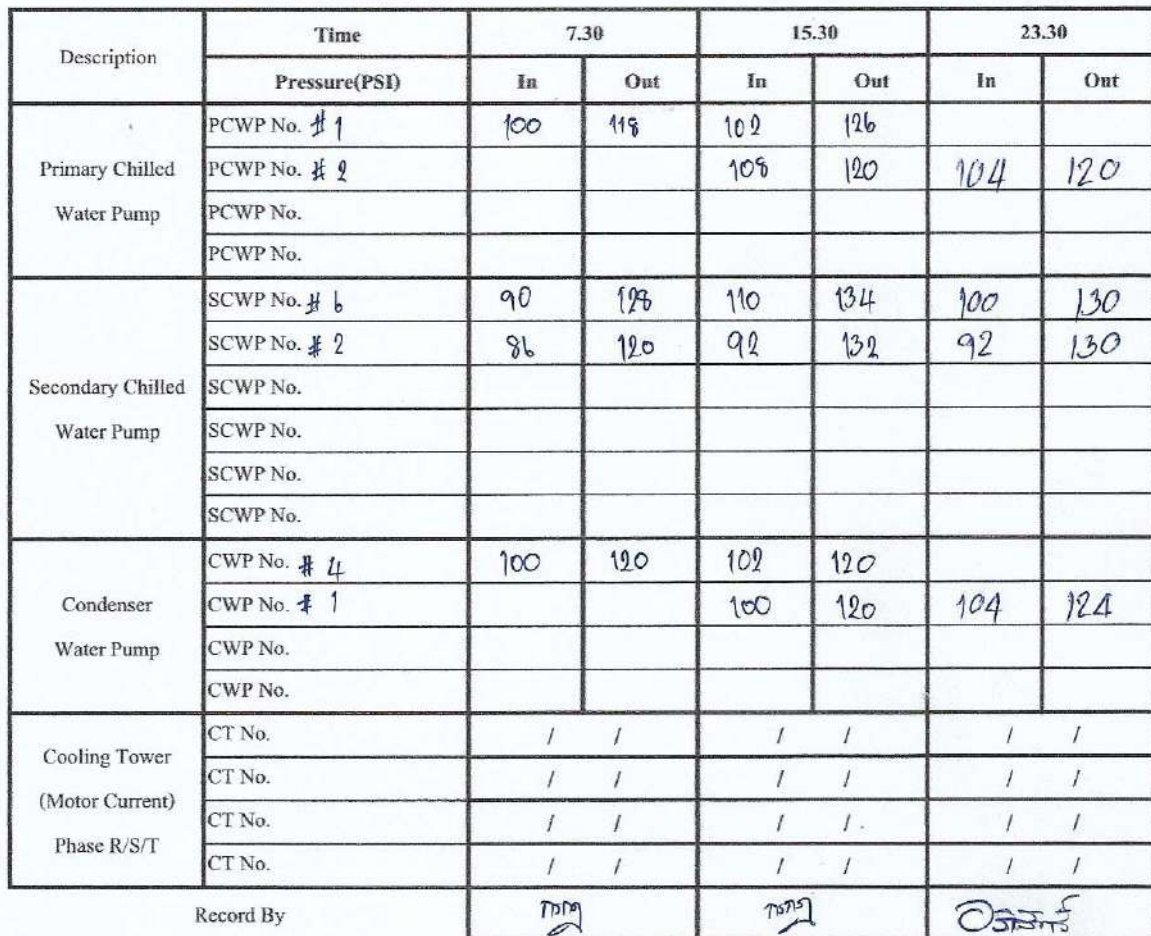 Description Time 7.30 15.30 23.30
Pressure(PSI) In Out In Out In Out
Primary Chilled Water Pump
PCWP No. # 1 100 118 102 126
PCWP No. # 2 108 120 104 120
PCWP No.
PCWP No.
Secondary Chilled Water Pump
SCWP No. # 6 90 128 110 134 100 130
SCWP No. # 2 86 120 92 132 92 130
SCWP No.
SCWP No.
SCWP No.
SCWP No.
Condenser Water Pump
CWP No. # 4 100 120 102 120
CWP No. # 1 100 120 104 124
CWP No.
CWP No.
Cooling Tower (Motor Current) Phase R/S/T
CT No. / / / / / /
CT No. / / / / / /
CT No. / / / / / /
CT No. / / / / / /
Record By